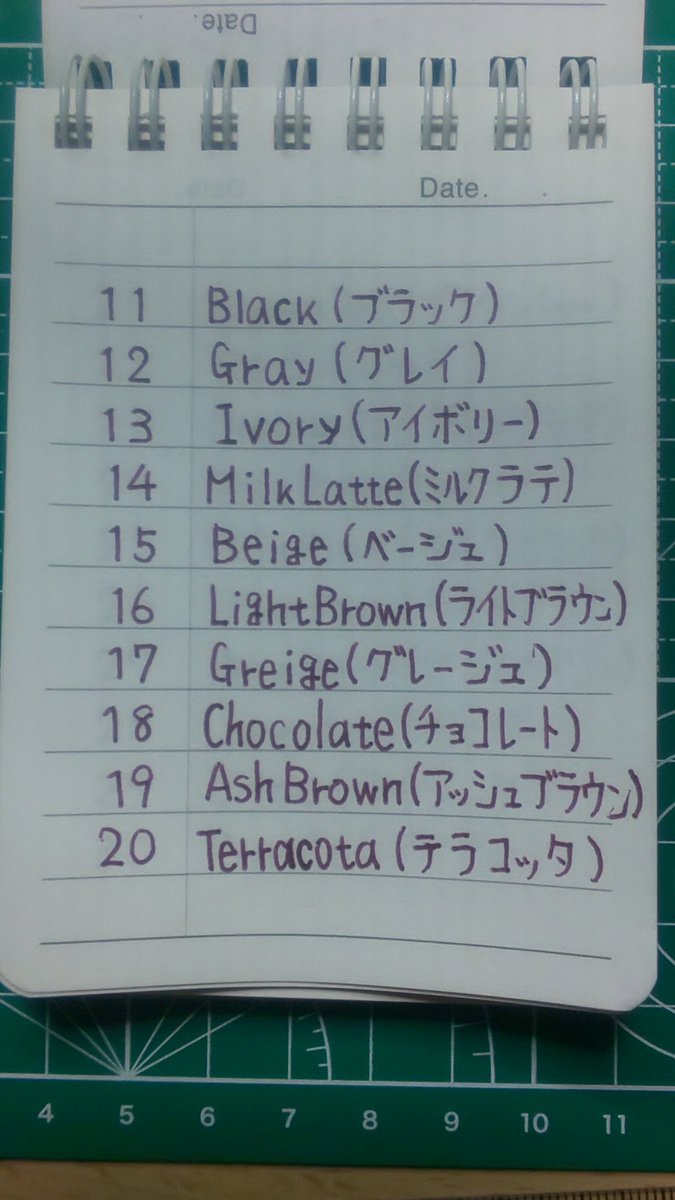 Date.
Date.
11 Black (ブラック)
12 Gray (グレイ)
13 Ivory (アイボリー)
14 MilkLatte (ミルクラテ)
15 Beige (ベージュ)
16 LightBrown (ライトブラウン)
17 Greige (グレージュ)
18 Chocolate (チョコレート)
19 AshBrown (アッシュブラウン)
20 Terracota (テラコッタ)
4 5 6 7 8 9 10 11